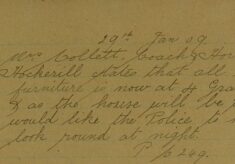 29th Jan 09
Mrs Collett, Coach & Hor
Hockerill states that all
furniture is now at 4 Gra
& as the house will be
would like the Police to
look round at night.
P p 249.